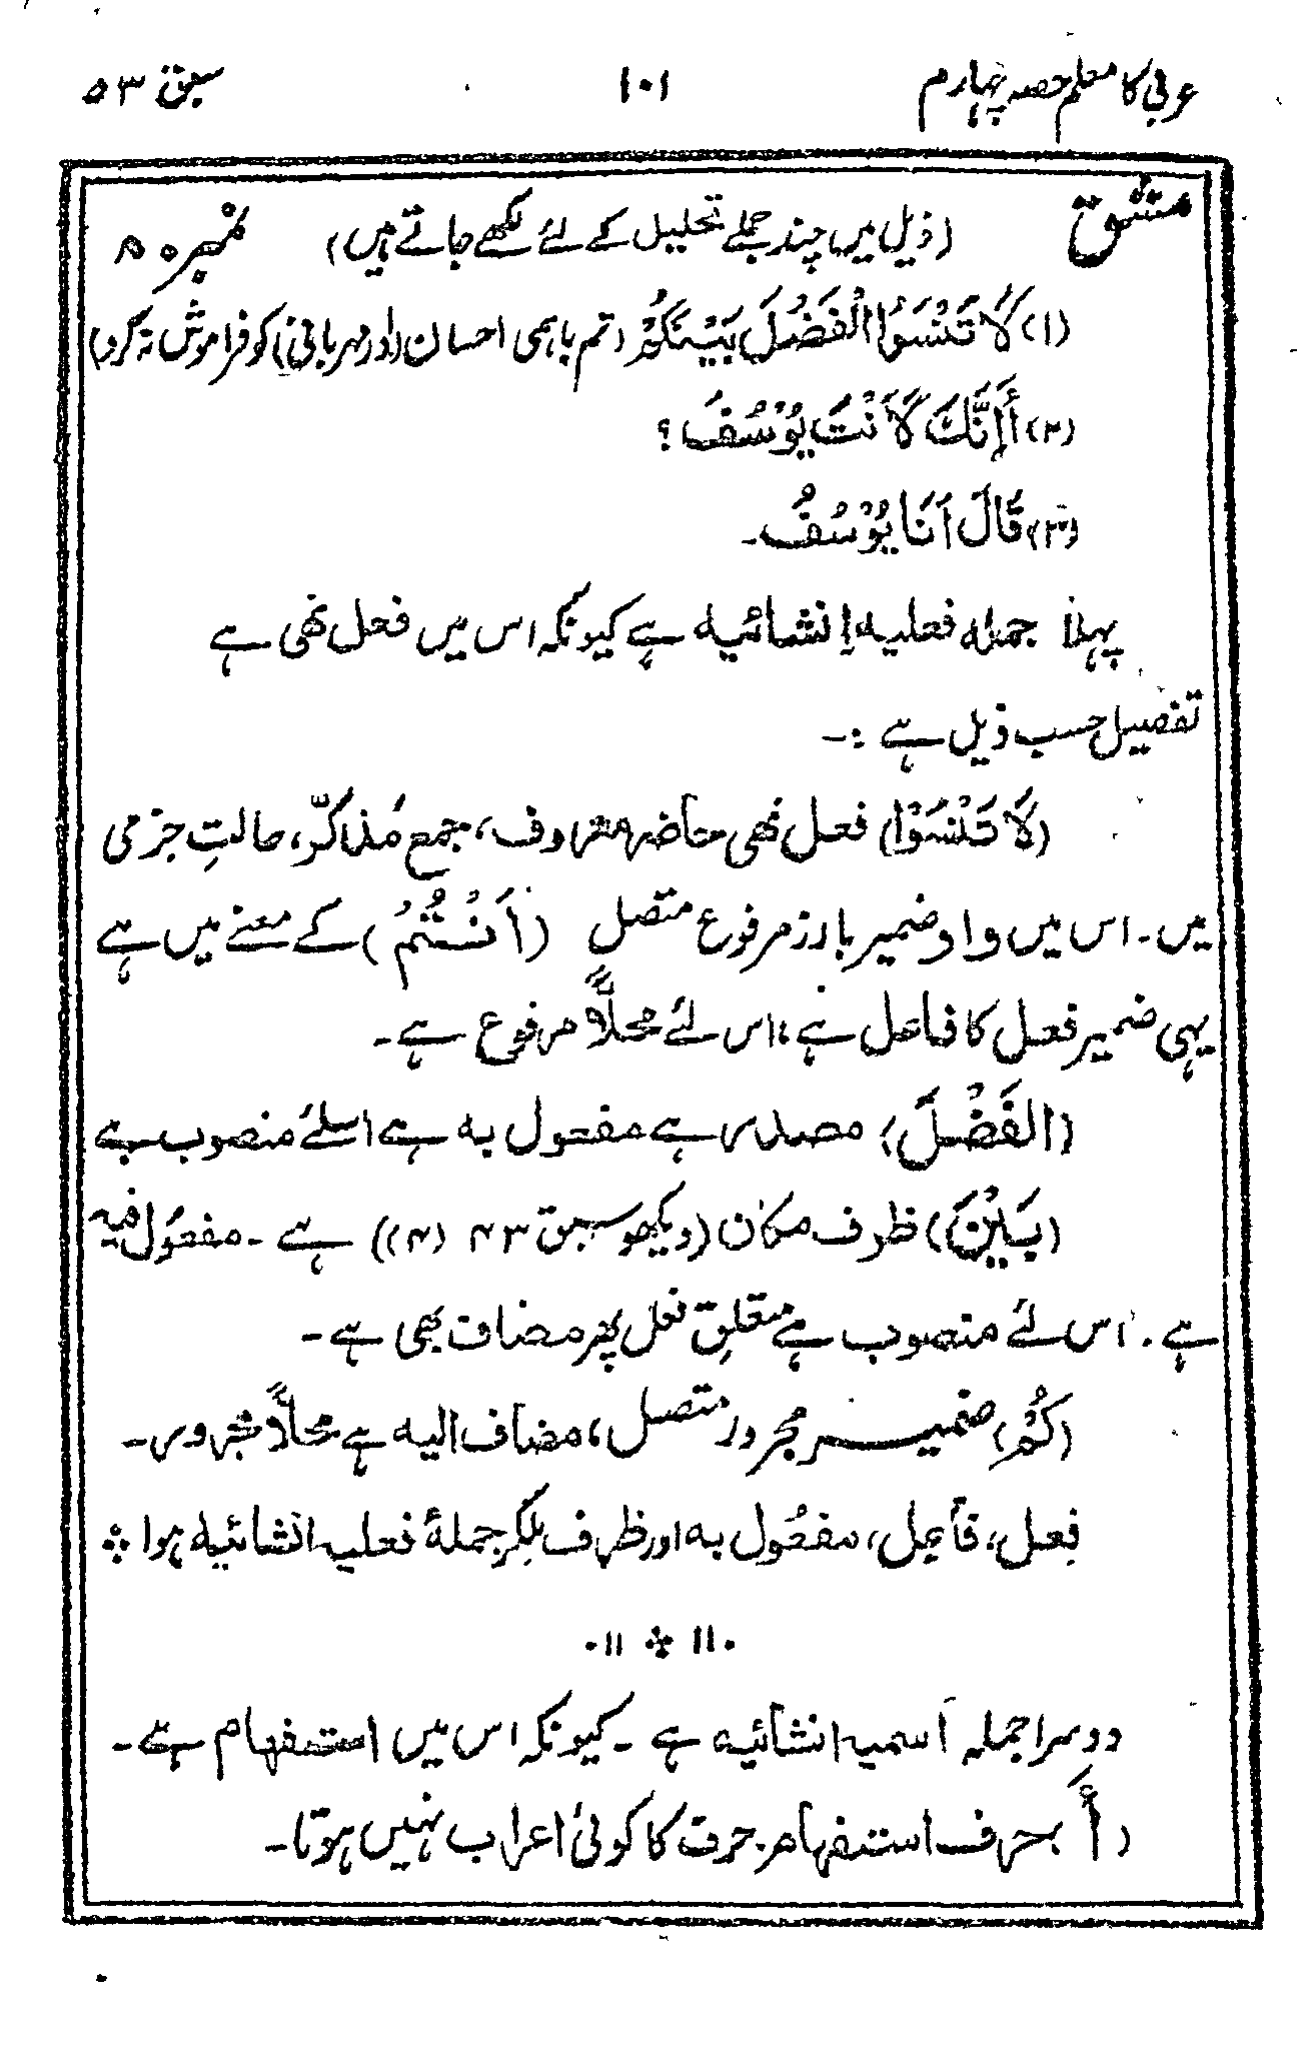 عربی کا معلم حصہ چہارم ۱۰۱ سبق ۵۳
مشق (ذیل میں چند جملے تحلیل کے لئے لکھے جاتے ہیں) نمبر ۸۰
(۱) لَا تَنْسَوُا الْفَضْلَ بَيْنَكُمْ (تم باہمی احسان (اور مہربانی) کو فراموش نہ کرو)
(۲) أَإِنَّكَ لَأَنْتَ يُوْسُفَ ؟
(۳) قَالَ اَنَا يُوْسُفُ ۔
پہلا جملہ فعلیہ اِنشائیہ ہے کیونکہ اس میں فعل نھی ہے
تفصیل حسب ذیل ہے :-
(لَا تَنْسَوْا) فعل نھی حاضر معروف، جمع مُذکّر، حالتِ جزمی
میں۔ اس میں واو ضمیر بارز مرفوع متصل (اَنْتُمْ) کے معنے میں ہے
یہی ضمیر فعل کا فاعل ہے، اس لئے محلاًّ مرفوع ہے۔
(الفَضْلَ) مصدر ہے مفعول بہ ہے اسلئے منصوب ہے
(بَيْنَ) ظرف مکان (دیکھو سبق ۴۳ (۴)) ہے ۔ مفعُول فیہ
ہے ۔ اس لئے منصوب ہے متعلِق فعل پھر مضاف بھی ہے۔
(كُمْ) ضمیر مجرور متصل، مضاف الیہ ہے محلاًّ مجرور۔
فِعل، فاعِل، مفعُول بہ اور ظرف ملکر جملۂ فعلیہ انشائیہ ہوا ❖
۔۱۱ ❖ ۱۱۔
دوسرا جملہ اسمیہ انشائیہ ہے ۔ کیونکہ اس میں استفہام ہے ۔
(أَ) حرف استفہام۔ حرف کا کوئی اعراب نہیں ہوتا۔